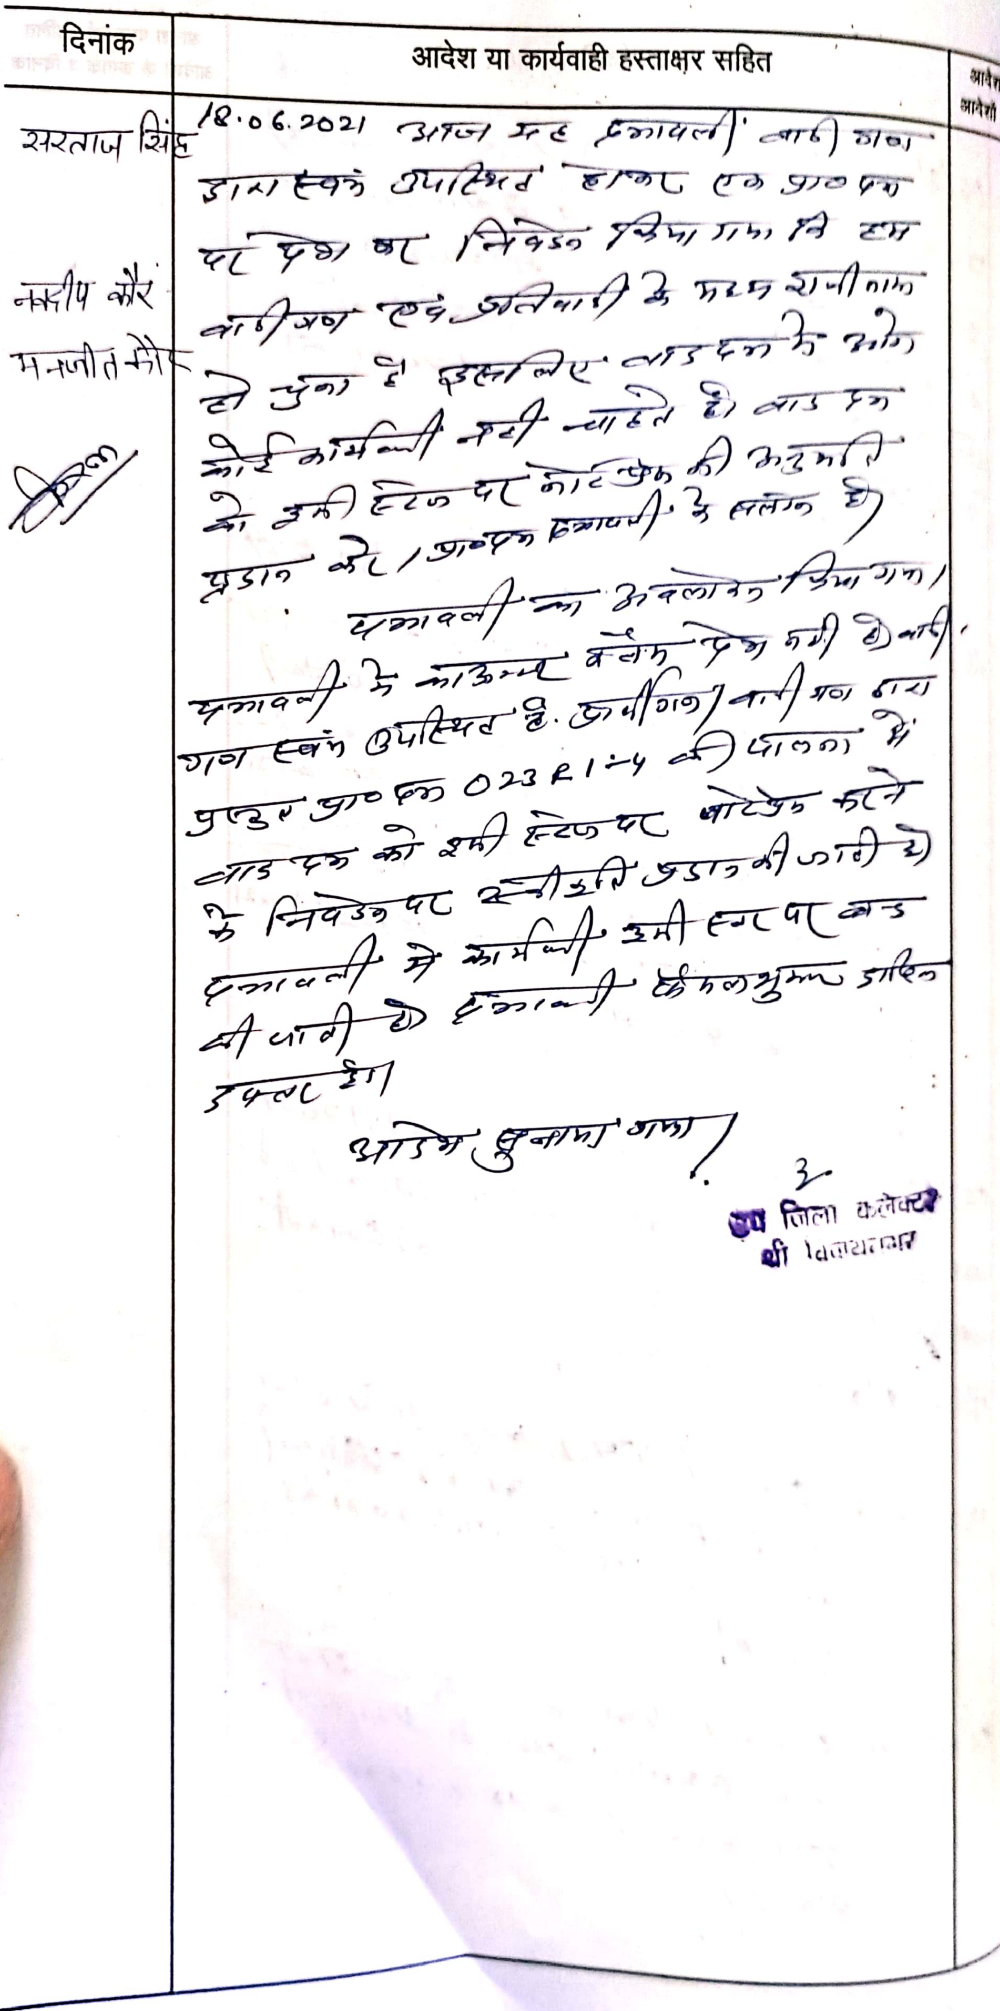 दिनांक
आदेश या कार्यवाही हस्ताक्षर सहित
आदेश
आदेशों
सरताज सिंह
नवदीप कौर
मनजीत कौर
18.06.2021 आज यह पत्रावली वादी गण
द्वारा स्वयं उपस्थित होकर एक प्रा० पत्र
पर पेश कर निवेदन किया गया कि हम
वादीगण एवं प्रतिवादी के मध्य राजीनामा
हो चुका है इसलिए वाद पत्र में आगे
कोई कार्यवाही नही चाहते है। वाद पत्र
को इसी स्टेज पर की अनुमति
प्रदान करे। प्रा०पत्र पत्रावली के सलंग्न है।
पत्रावली का अवलोकन किया गया।
पत्रावली में पेश नही है। वादी
गण स्वंय उपस्थित है. प्रार्थीगण/वादी गण द्वारा
प्रस्तुत प्रा० पत्र O23 R 1-4 की पालना में
वाद पत्र को इसी स्टेज पर करने
के निवेदन पर स्वीकृति प्रदान की जाती है।
पत्रावली में कार्यवाही इसी स्तर पर बन्द
की जाती है। पत्रावली फैसलशुमार दाखिल
दफ्तर हो।
आदेश सुनाया गया।
उप जिला कलेक्टर
श्री विजयनगर